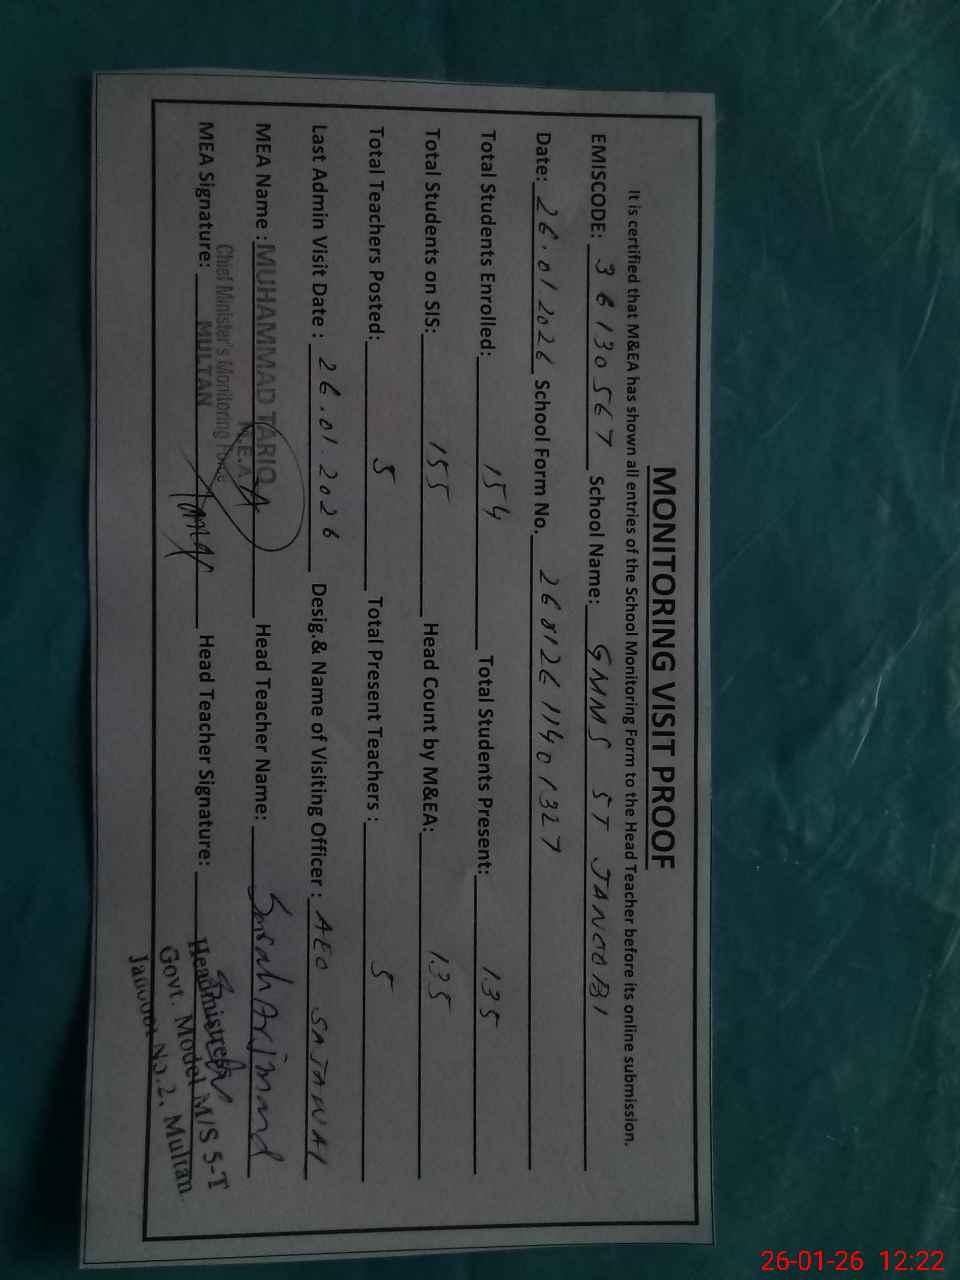 MONITORING VISIT PROOF
It is certified that M&EA has shown all entries of the School Monitoring Form to the Head Teacher before its online submission.
EMISCODE: 36130567 School Name: GMMS 5T JANOOBI
Date: 26.01.2026 School Form No. 26812611401327
Total Students Enrolled: 154 Total Students Present: 135
Total Students on SIS: 155 Head Count by M&EA: 135
Total Teachers Posted: 5 Total Present Teachers : 5
Last Admin Visit Date : 26.01.2026 Desig.& Name of Visiting Officer : AEO SAJAWAL
MEA Name : MUHAMMAD TARIQ Head Teacher Name: Arjmand
M.E.A
Chief Minister's Monitoring Force
MULTAN
MEA Signature: Head Teacher Signature:
Headmistress
Govt. Model M/S 5-T
Janoobi No.2, Multan.
26-01-26 12:22